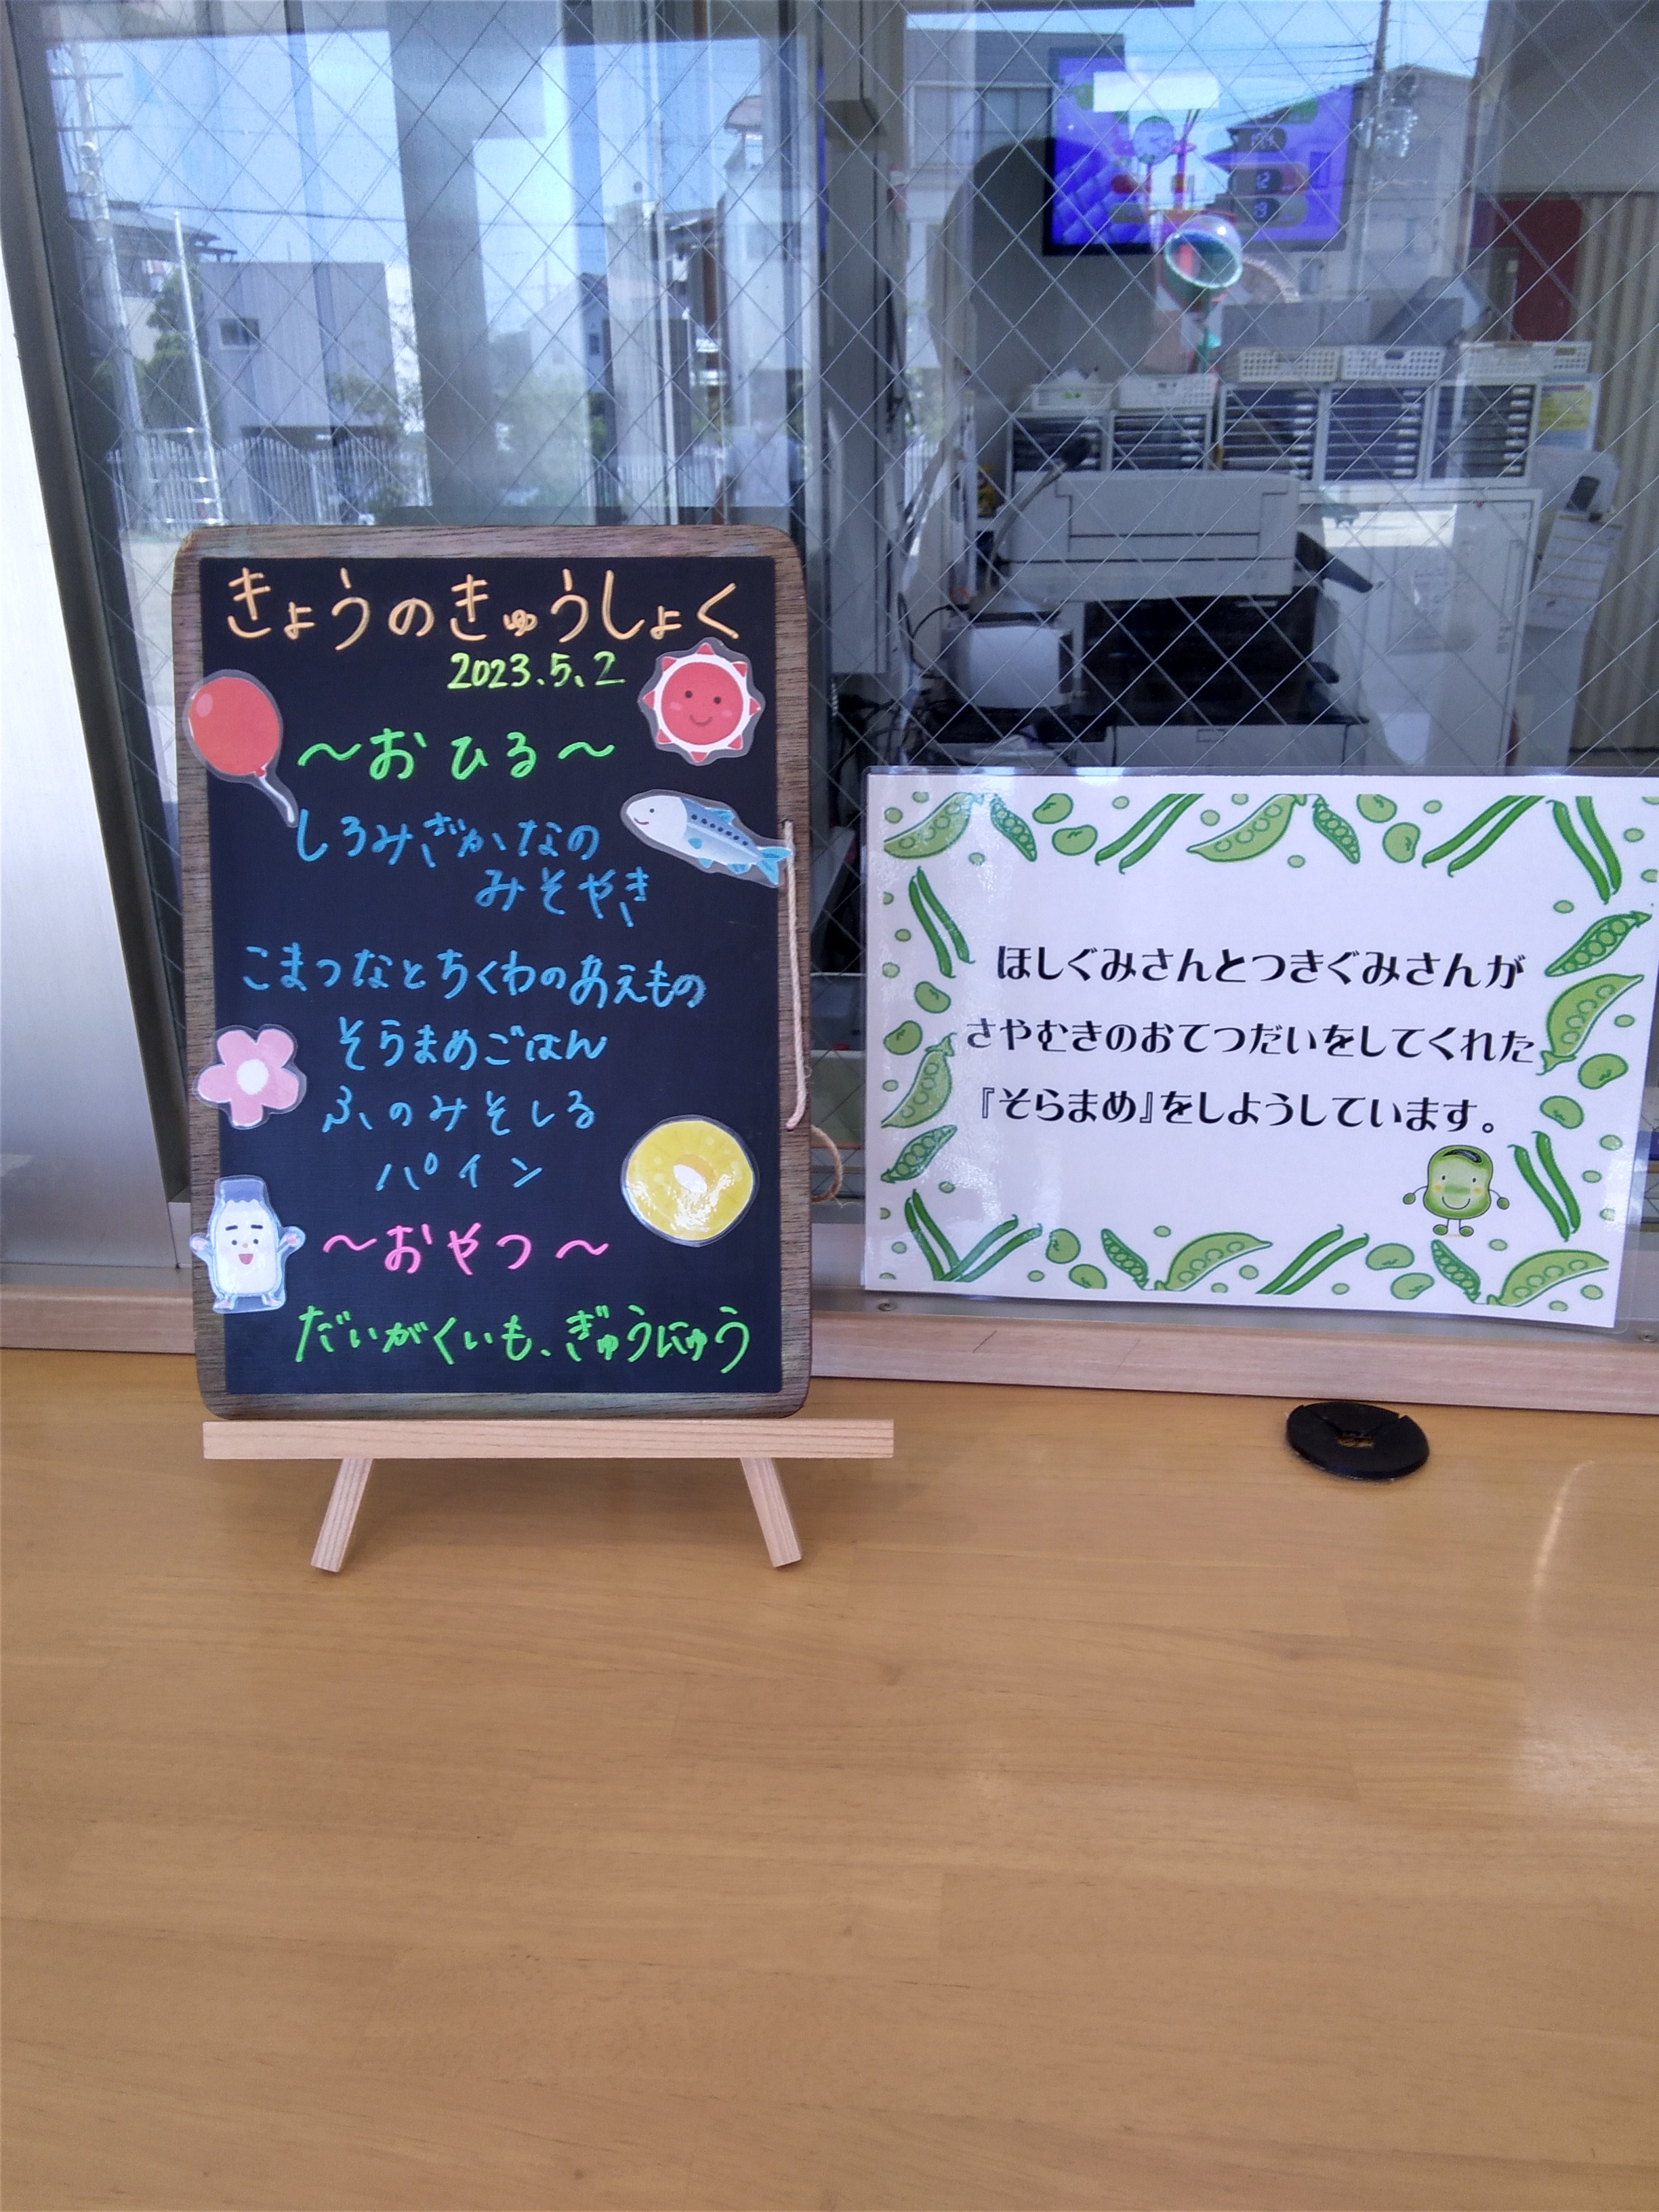 きょうのきゅうしょく
2023.5.2
～おひる～
しろみざかなの
みそやき
こまつなとちくわのあえもの
そらまめごはん
ふのみそしる
パイン
～おやつ～
だいがくいも、ぎゅうにゅう
ほしぐみさんとつきぐみさんが
さやむきのおてつだいをしてくれた
『そらまめ』をしようしています。